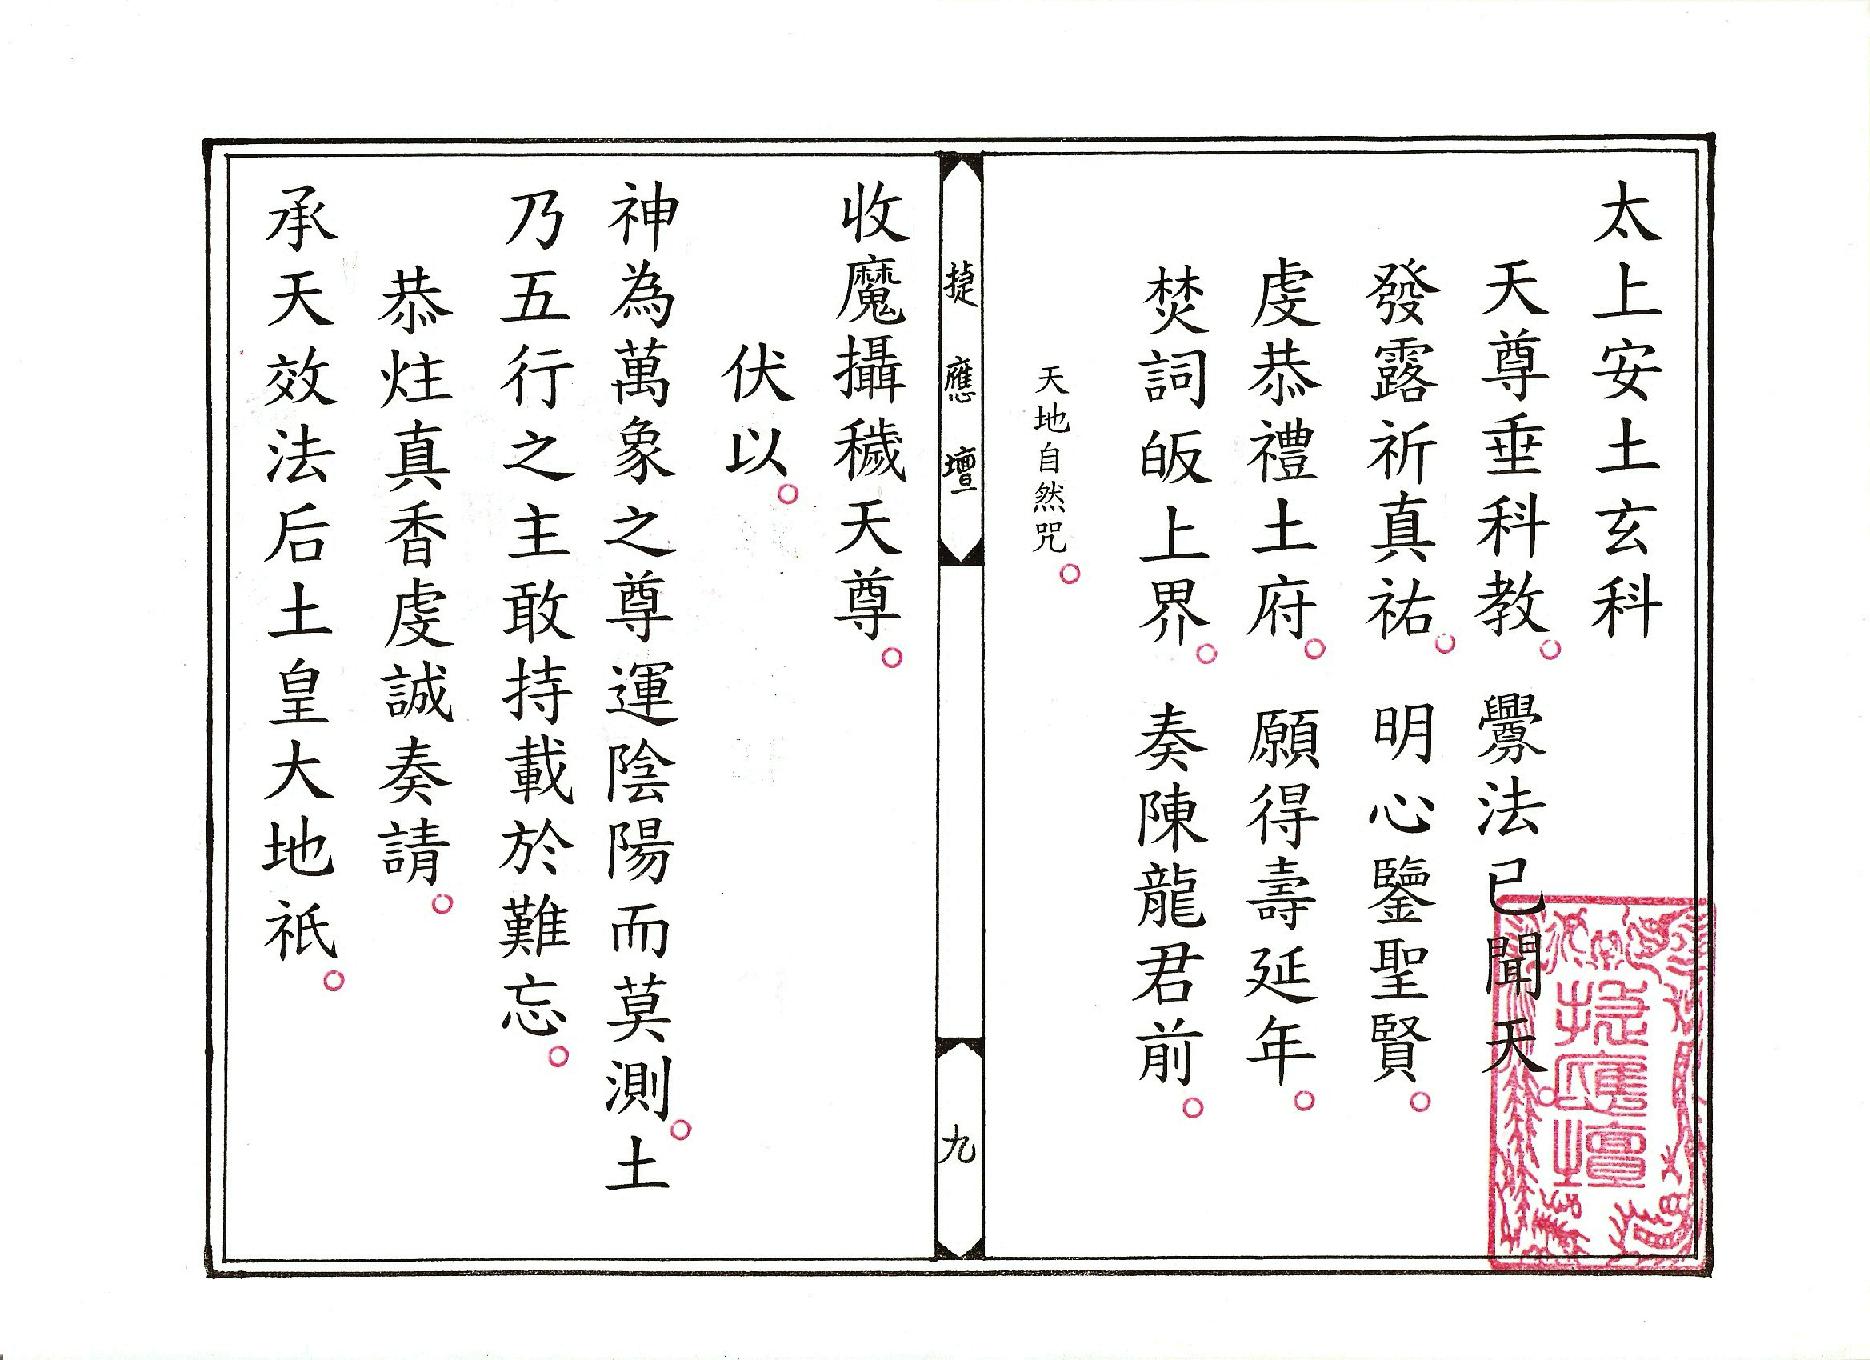 太上安土玄科
天尊垂科教。 釁法已聞天。
發露祈真祐。 明心鑒聖賢。
虔恭禮土府。 願得壽延年。
焚詞皈上界。 奏陳龍君前。
天地自然咒。
捷應壇
九
收魔攝穢天尊。
伏以。
神為萬象之尊運陰陽而莫測。土
乃五行之主敢持載於難忘。
恭炷真香虔誠奏請。
承天效法后土皇大地祇。
捷應壇